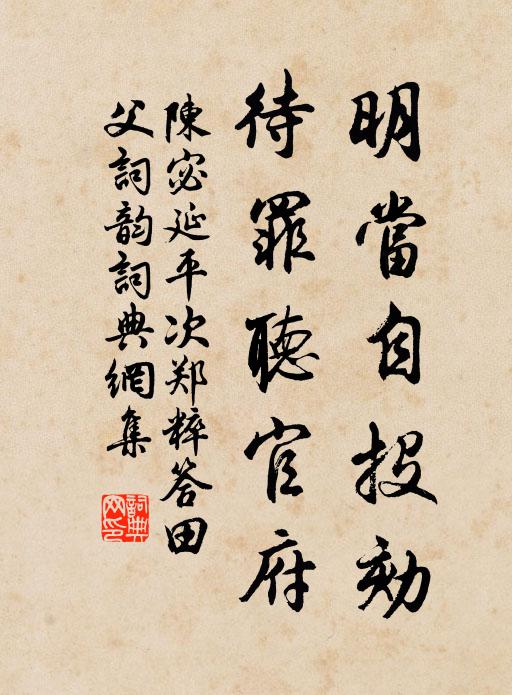 明當自投劾
待罪聽官府
陳宓延平次郑粹答田
父詞韵詞典網集
詞典網印